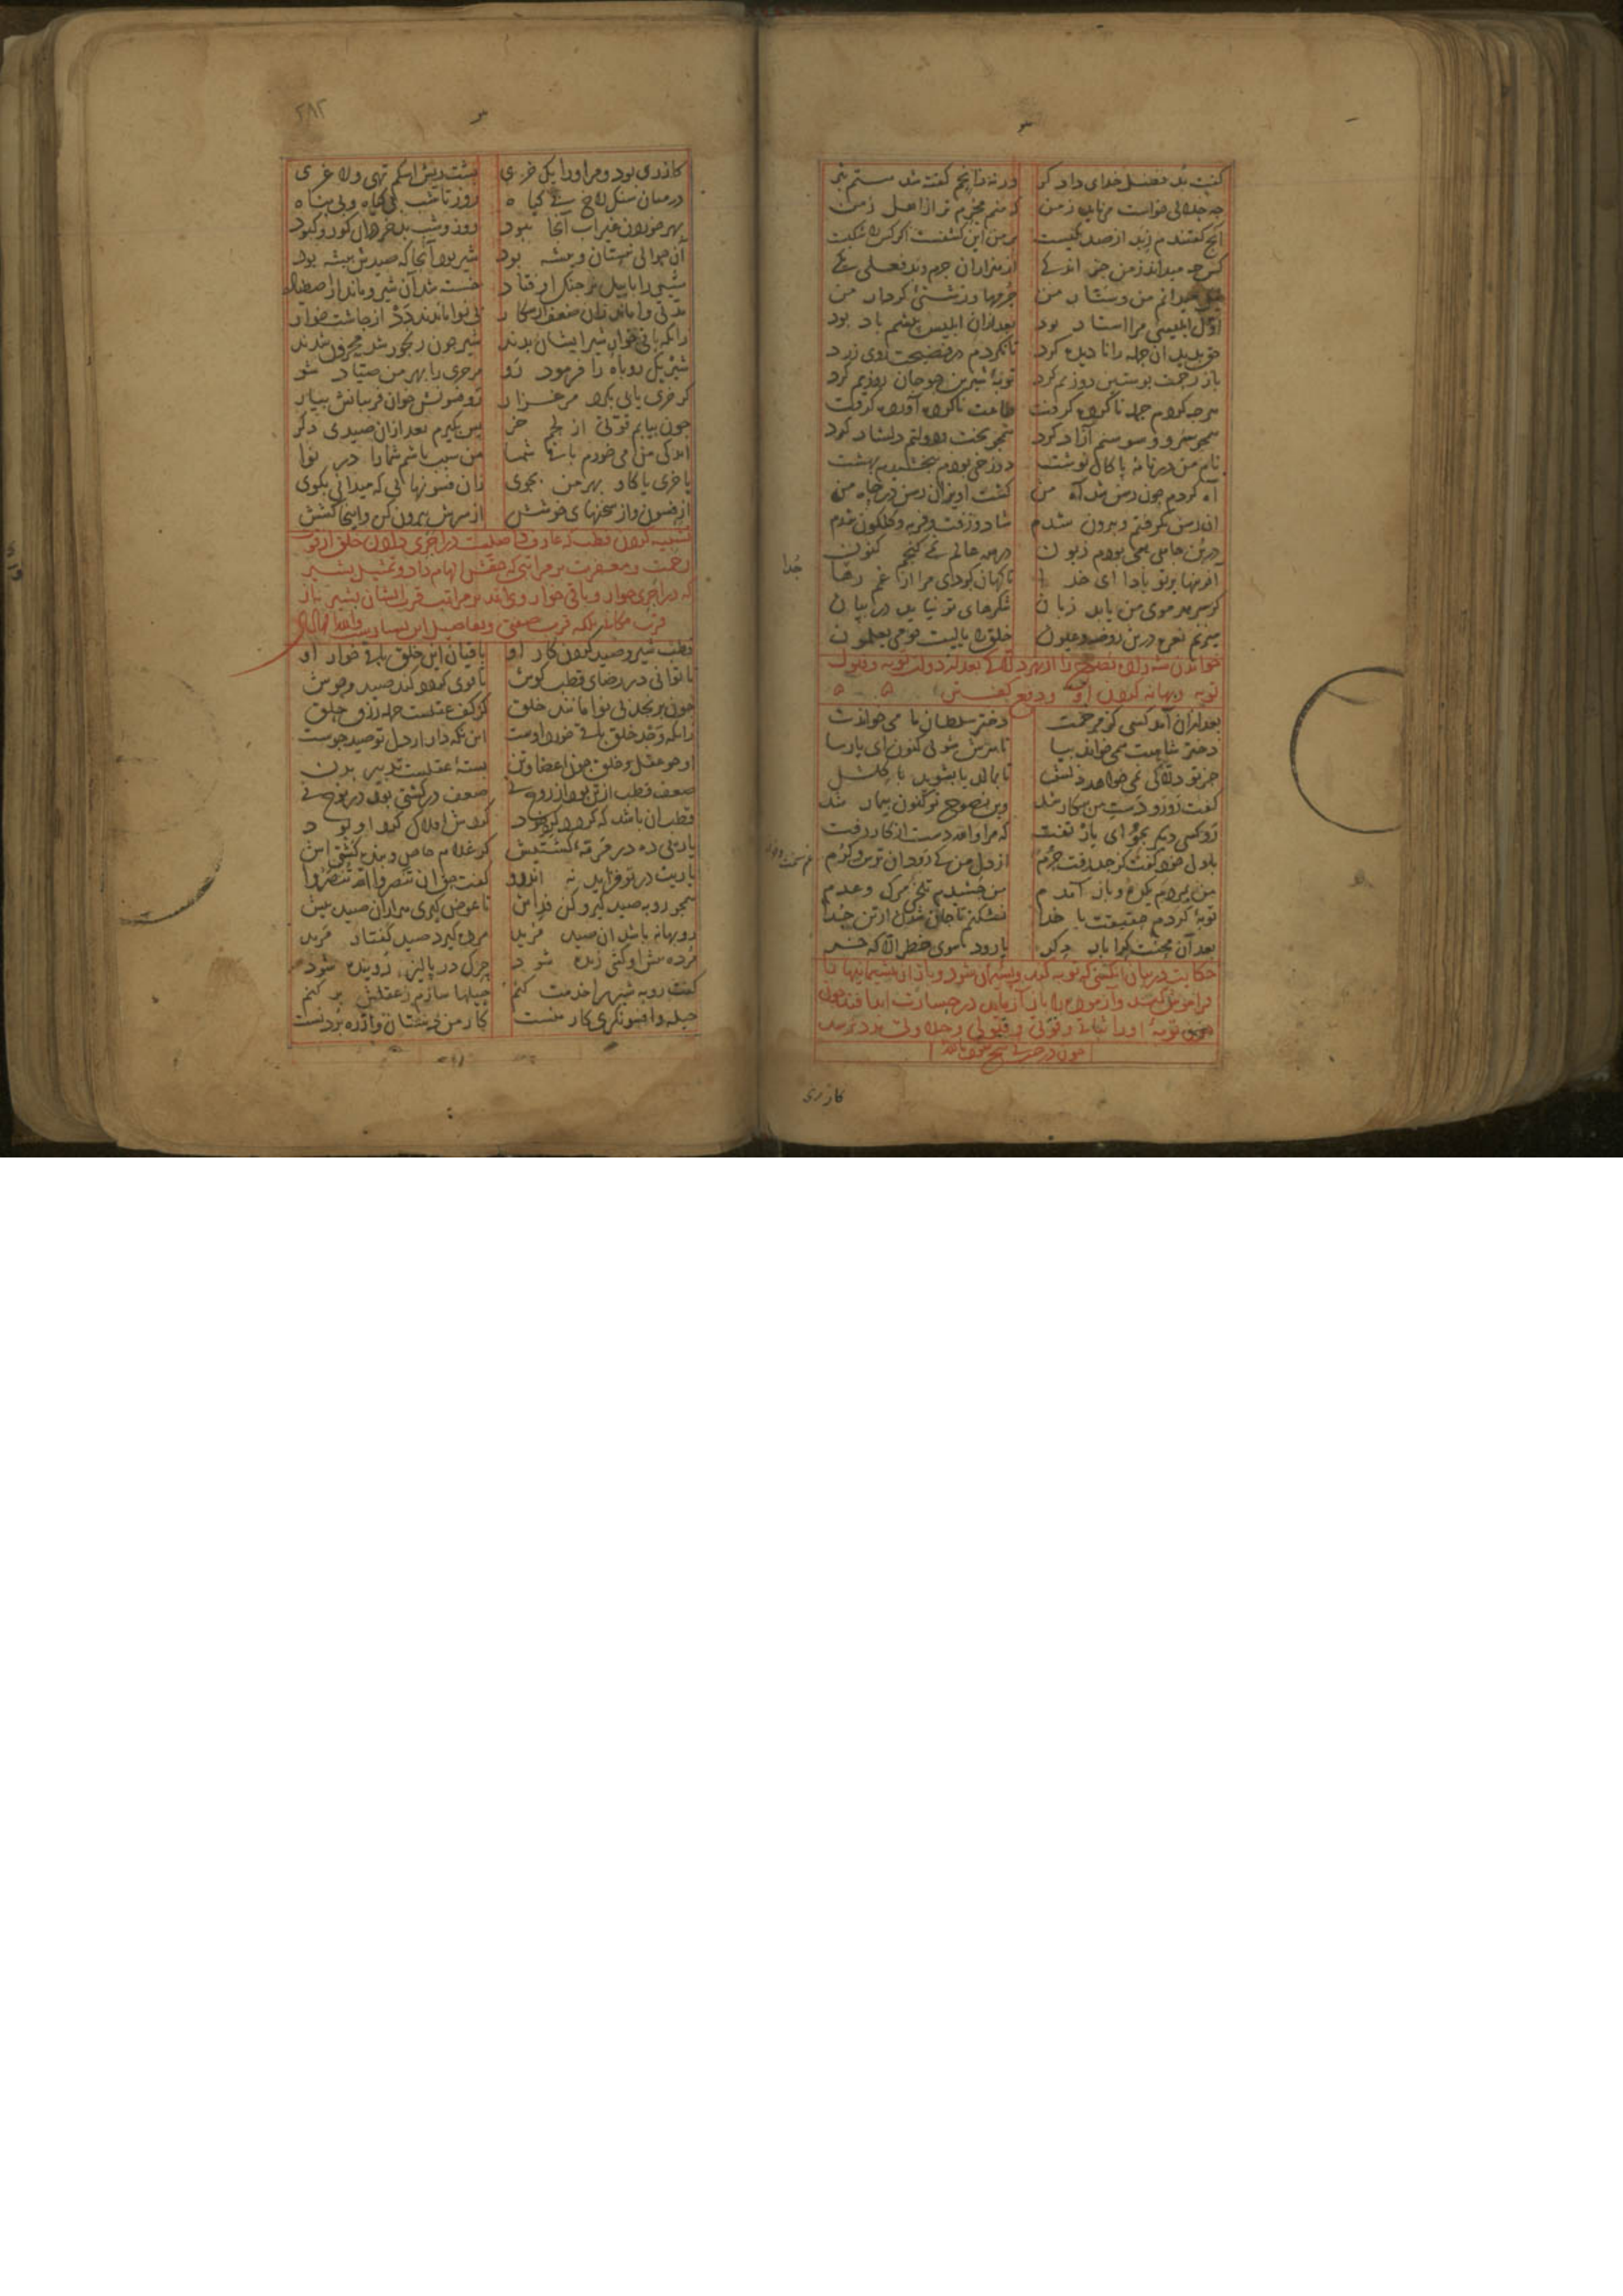 گفت بد فضل خدای دادگر ورنه زآنچم گفته شد هستم بتر
چه حلالی خواست می باید ز من که منم مجرم تر از اهل زمن
آنچ گفتندم ز بد از صد یکیست بر من این کشفست ار کس را شکیست
کس چه میداند ز من جز اندکی از هزاران جرم و بد فعلی یکی
من همی دانم من و ستار من جرمها و زشتی کردار من
اول ابلیسی مرا استاد بود بعد از آن ابلیس پیشم باد بود
حق بدید آن جمله را نادیده کرد تا نگردم در فضیحت روی زرد
باز رحمت پوستین دوزیم کرد توبهٔ شیرین چو جان روزیم کرد
هر چه کردم جمله ناکرده گرفت طاعت ناکرده آورده گرفت
همچو سرو و سوسنم آزاد کرد همچو بخت و دولتم دلشاد کرد
نام من در نامهٔ پاکان نوشت دوزخی بودم ببخشیدم بهشت
آه کردم چون رسن شد آه من گشت آویزان رسن در چاه من
آن رسن بگرفتم و بیرون شدم شاد و زفت و فربه و گلگون شدم
در بن چاهی همی بودم زبون در همه عالم نمی گنجم کنون
آفرینها بر تو بادا ای خدا ناگهان کردی مرا از غم رها
گر سر هر موی من یابد زبان شکرهای تو نیاید در بیان
میزنم نعره درین روضه و عیون خلق را یا لیت قومی یعلمون
خواندن شه زاده نصوح را از بهر دلاکی بعد از
توبه و بهانه کردن او و دفع گفتن
بعد از آن آمد کسی کز مرحمت دختر سلطان ما می خواندت
دختر شاهت همی خواند بیا تا سرش شویی کنون ای پارسا
جز تو دلاکی نمی خواهد دلش تا بمالد یا بشوید با گلش
گفت رو رو دست من بیکار شد وین نصوح تو کنون بیمار شد
رو کسی دیگر بجو ای یار تفت که مرا والله دست از کار رفت
با دل خود گفت کز حد رفت جرم از دل من کی رود آن ترس و گرم
من بمردم یکره و باز آمدم من چشیدم تلخی مرگ و عدم
توبهٔ کردم حقیقت با خدا نشکنم تا جان شدن از تن جدا
بعد آن محنت کرا بار دگر پا رود سوی خطر الا که خر
حکایت در بیان آنکسی که توبه کند و پشیمان شود و باز آن پشیمانیها را
فراموش کند و آزموده را باز آزماید در خسارت ابد افتد چون
توبهٔ او را ثباتی و قوتی و قبولی و حلاوتی مدد نرسد
چون درخت بی بیخ
گازری
جدا
گازری بود و مر او را یک خری پشت ریش اشکم تهی و لاغری
در میان سنگ لاخ بی گیاه روز تا شب بی گیاه و بی پناه
بهر خوردن غیر آب آنجا نبود روز و شب بد خر در آن کور و کبود
آن حوالی نیستان و بیشه بود شیر بود آنجا که صیدش بیشه بود
شیر را با پیل نر جنگ اوفتاد خسته شد آن شیر و ماند از اصطیاد
مدتی وا ماند زان ضعف از شکار بی نوا ماندند دد از چاشت خوار
زانکه باقی خوار شیر ایشان بدند شیر چون رنجور شد محروم شدند
شیر یک روباه را فرمود رو مر خری را بهر من صیاد شو
گر خری یابی بگرد مرغزار رو فسونش خوان فریبانش بیار
چون بیابم قوتی از لحم خر پس بگیرم بعد از آن صیدی دگر
اندکی من می خورم باقی شما من سبب باشم شما را در نوا
یا خری یا گاو بهر من بجوی زان فسونهایی که میدانی بگوی
از فسون و از سخنهای خوشش از سرش بیرون کن و اینجا کشش
تشبیه کردن قطب که عارف واصلست در اجری دادن خلق از قوت
رحمت و مغفرت بر مراتبی که حقش الهام داد و تمثیل بشیر
که در اجری خوار و باقی خوار وی اند بر مراتب قرب ایشان بشیر نه از
قرب مکانی بلکه قرب صفتی و تفاصیل این بسیارست والله الهادی
قطب شیر و صید کردن کار او باقیان این خلق باقی خوار او
تا توانی در رضای قطب کوش تا قوی گردد کند صید وحوش
چون برنجد بی نوا مانند خلق کز کف عقلست جمله رزق حلق
زانکه وجد خلق باقی خورد اوست این نگه دار ار دل تو صیدجوست
او چو عقل و خلق چون اعضا و تن بستهٔ عقلست تدبیر بدن
ضعف قطب از تن بود از روح نی ضعف در کشتی بود در نوح نی
قطب آن باشد که گرد خود تند گردش افلاک گرد او بود
یاریی ده در مرمهٔ کشتیش گر غلام خاص و بنده گشتیش
یاریت در تو فزاید نه اندرو گفت حق ان تنصروا الله تنصروا
همچو روبه صید گیر و کن فداش تا عوض گیری هزاران صید بیش
روبهانه باشد آن صید مرید مرده گیرد صید کفتار مرید
مرده پیش او کشی زنده شود چرک در پالیز روینده شود
گفت روبه شیر را خدمت کنم حیلها سازم ز عقلش بر کنم
حیله و افسونگری کار منست کار من دستان و از ره بردنست